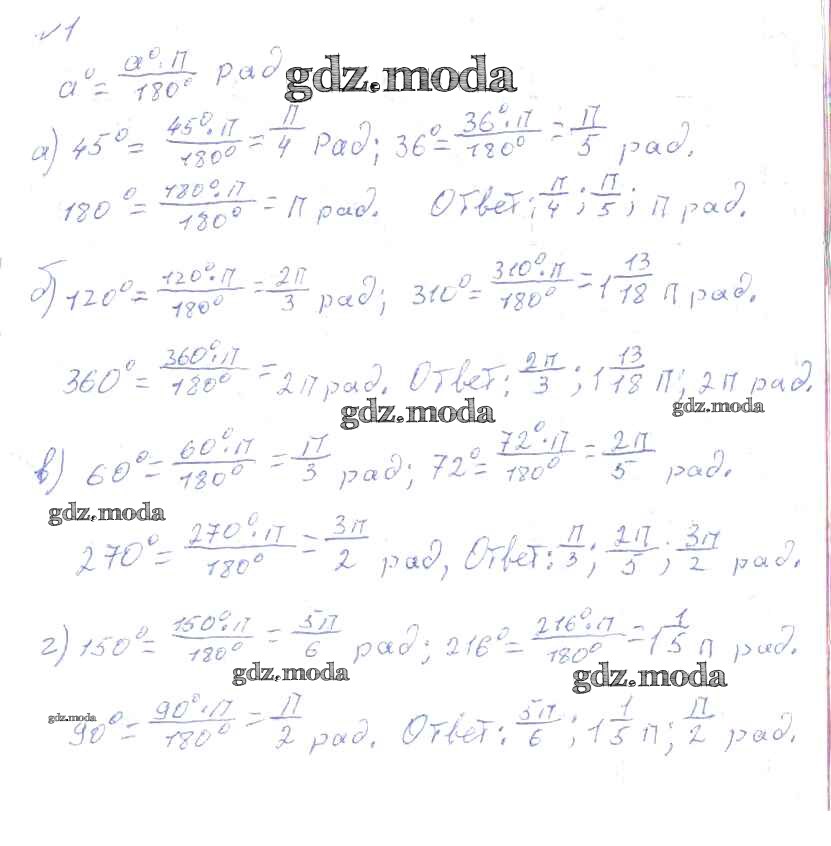 №1
a° = a°·π/180° рад gdz.moda
а) 45° = 45°·π/180° = π/4 рад; 36° = 36°·π/180° = π/5 рад.
180° = 180°·π/180° = π рад. Ответ: π/4; π/5; π рад.
б) 120° = 120°·π/180° = 2π/3 рад; 310° = 310°·π/180° = 1 13/18 π рад.
360° = 360°·π/180° = 2π рад. Ответ: 2π/3; 1 13/18 π; 2π рад.
gdz.moda gdz.moda
в) 60° = 60°·π/180° = π/3 рад; 72° = 72°·π/180° = 2π/5 рад.
gdz.moda
270° = 270°·π/180° = 3π/2 рад, Ответ: π/3; 2π/5; 3π/2 рад.
г) 150° = 150°·π/180° = 5π/6 рад; 216° = 216°·π/180° = 1 1/5 π рад.
gdz.moda gdz.moda
gdz.moda
90° = 90°·π/180° = π/2 рад. Ответ: 5π/6; 1 1/5 π; π/2 рад.